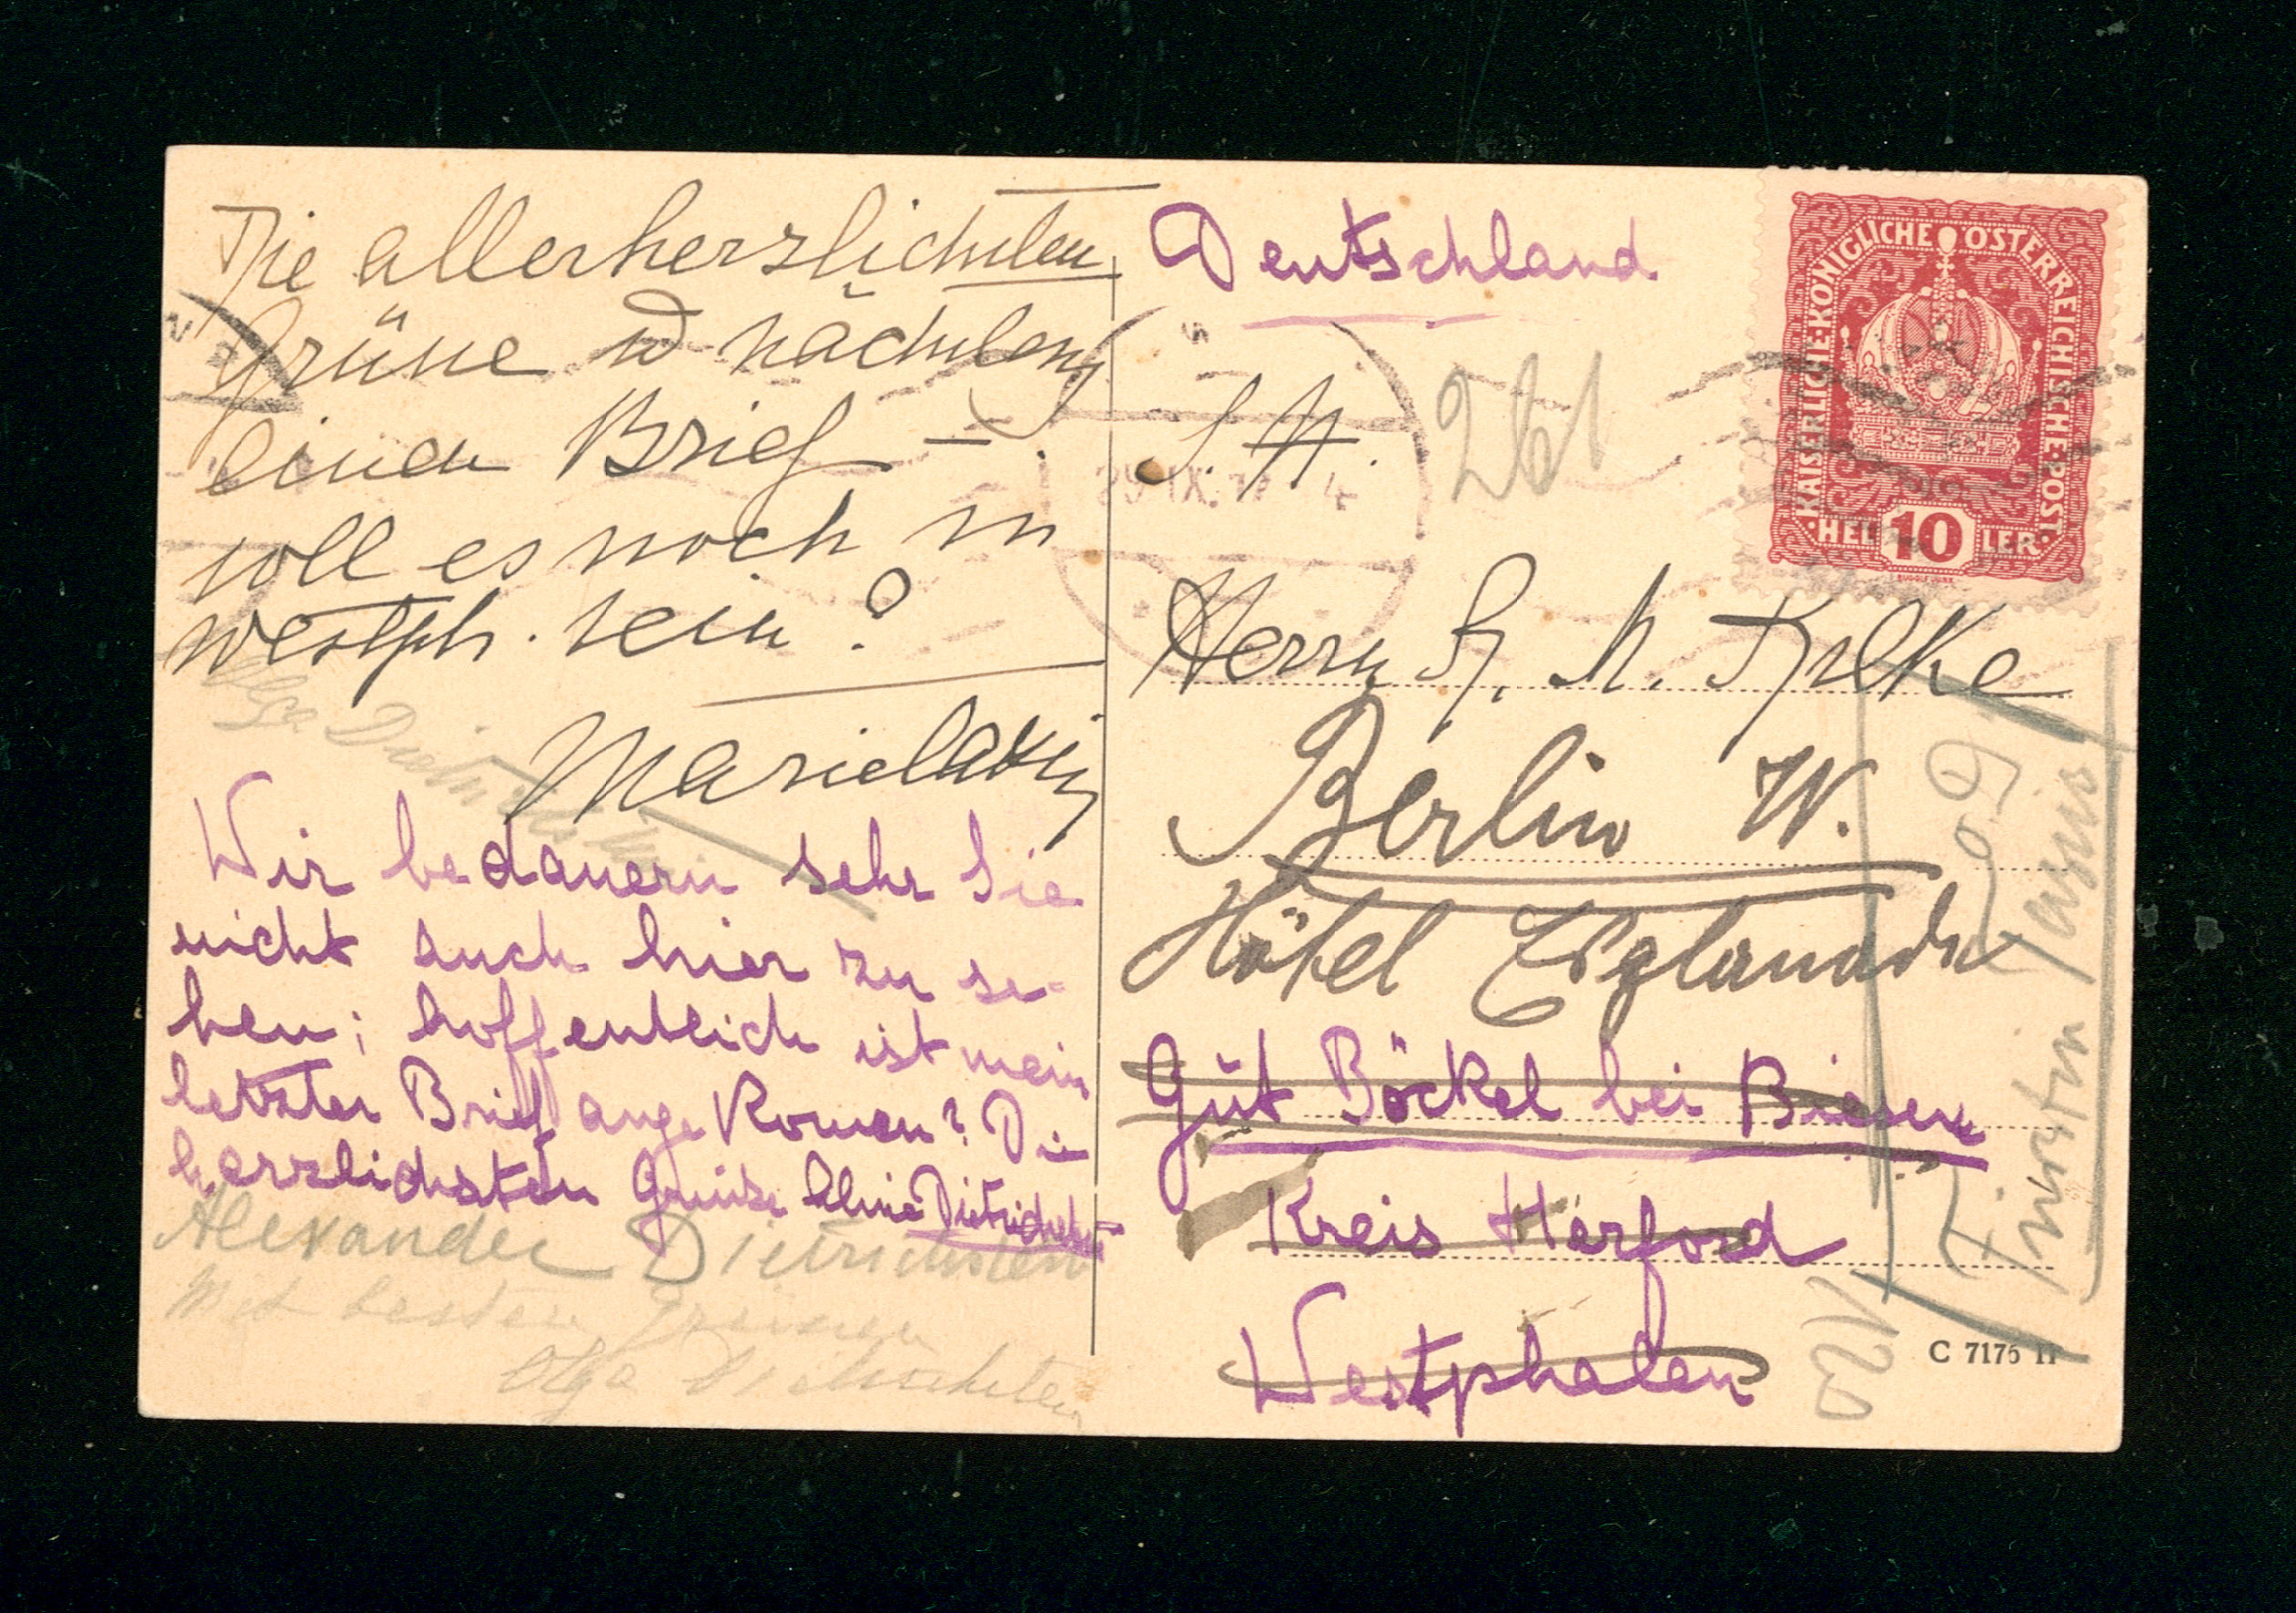 Die allerherzlichsten
Grüsse u nächstens
einen Brief –.
soll es noch in
Westph. sein?
Marietaxis
Olga Dietrichstein
Wir bedauern sehr Sie
nicht auch hier zu se=
hen; hoffentlich ist mein
letzter Brief angekommen? Die
herzlichsten Grüsse Aline Dietrichstein
Alexander Dietrichstein
Mit besten Grüssen
Olga Dietrichstein
Deutschland
S. H.
261
29 IX. 17 4
KAISERLICHE·KÖNIGLICHE ÖSTERREICHISCHE·POST·
HEL 10 LER
Herrn R. M. Rilke
Berlin W.
Hôtel Esplanade
Gut Böckel bei Bieren
Kreis Herford
Westphalen
Fürstin Taxis
C 7175 II